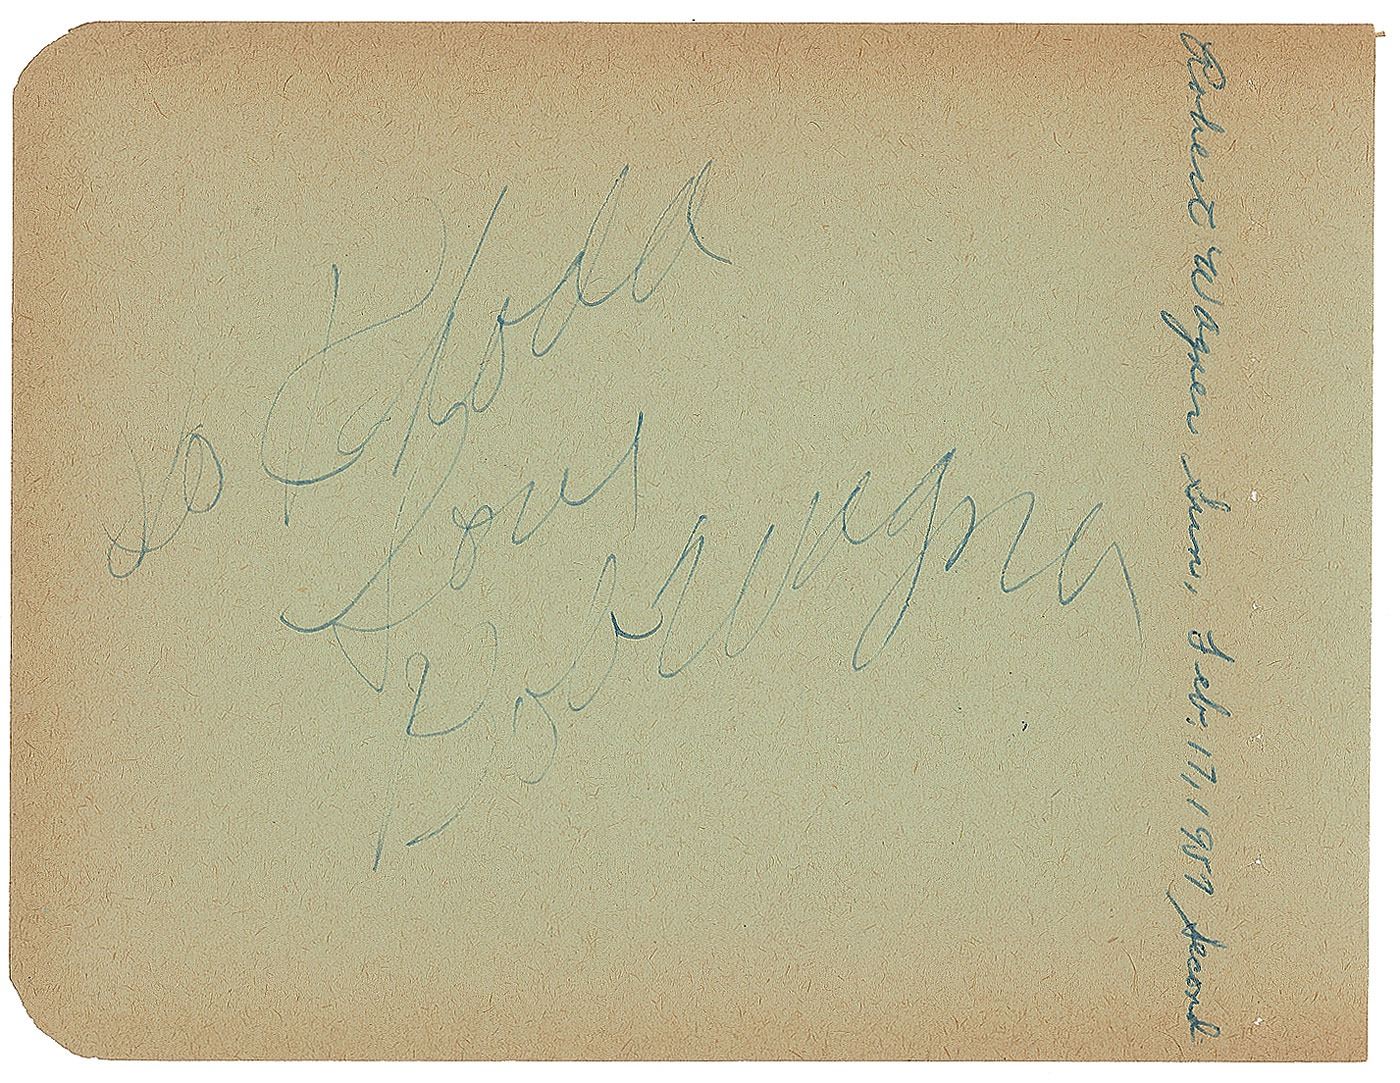 To Rhoda
Love
Bob Wagner
Robert Wagner Sun, Feb, 17, 1957 second